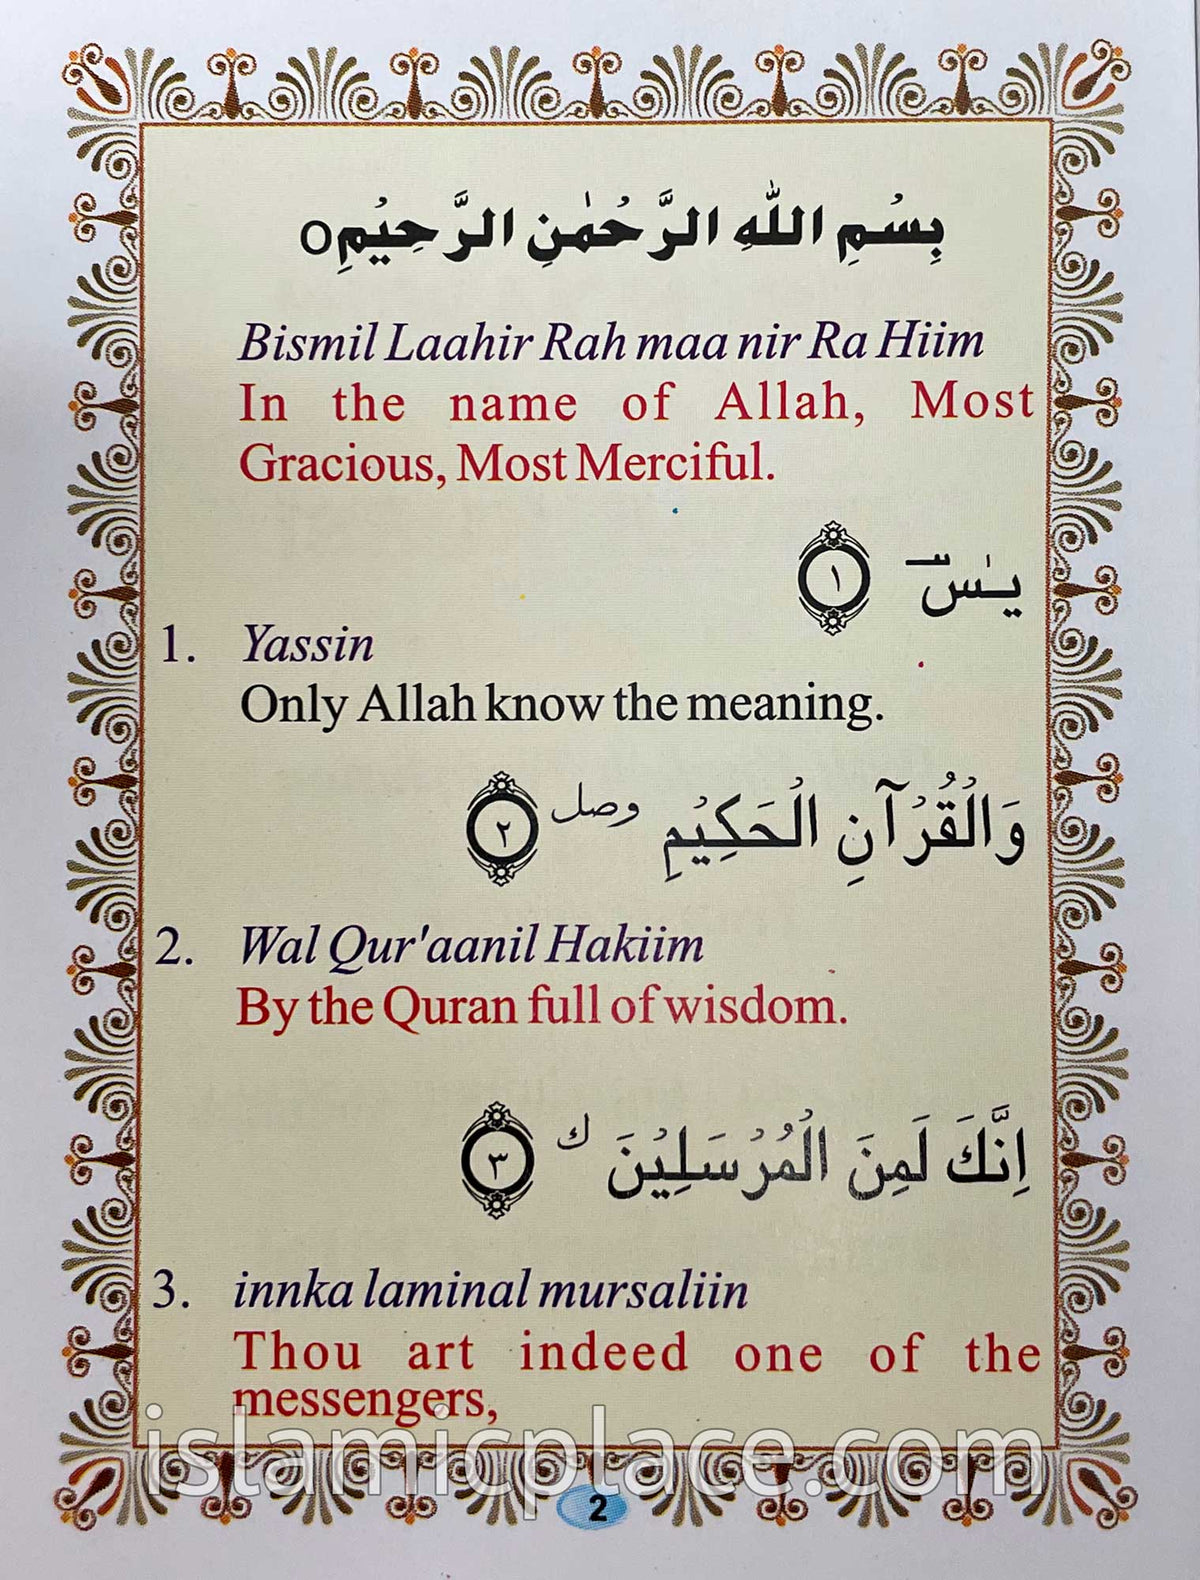 بِسْمِ اللّٰهِ الرَّحْمٰنِ الرَّحِيْمِ ○
Bismil Laahir Rah maa nir Ra Hiim
In the name of Allah, Most
Gracious, Most Merciful.
يٰسٓ ۚ ١
1. Yassin
Only Allah know the meaning.
وَالْقُرْآنِ الْحَكِيْمِ وصل ٢
2. Wal Qur'aanil Hakiim
By the Quran full of wisdom.
اِنَّكَ لَمِنَ الْمُرْسَلِيْنَ ك ٣
3. innka laminal mursaliin
Thou art indeed one of the
messengers,
islamicplace.com
2